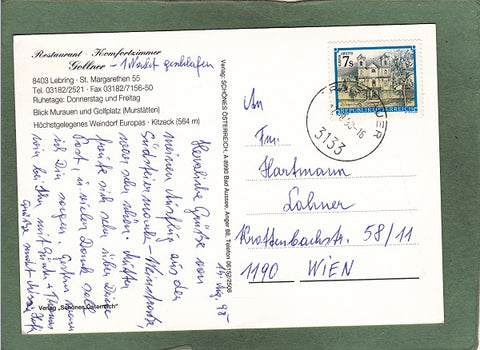 Restaurant · Komfortzimmer
Gollner – 1 Nacht geschlafen
8403 Lebring · St. Margarethen 55
Tel. 03182/2521 · Fax 03182/7156-50
Ruhetage: Donnerstag und Freitag
Blick Murauen und Golfplatz (Murstätten)
Höchstgelegenes Weindorf Europas · Kitzeck (564 m)
15. Aug. 95
Herzliche Grüße von
meinem Ausflug aus der
Südsteiermark – Weinstraße,
war sehr schön. Mutter
freute sich sehr über Deine
Post, u. vielen Dank soll
ich Dir sagen. Gestern waren
wir bei Ihr mit
Grüße
Verlag „Schönes Österreich"
Verlag: SCHÖNES ÖSTERREICH, A-8990 Bad Aussee, Anger 88, Telefon 06152/2508
7s
REPUBLIK ÖSTERREICH
3133
An
Fm:
Hartmann
Lahner
Krottenbachstr. 58/11
1190 WIEN